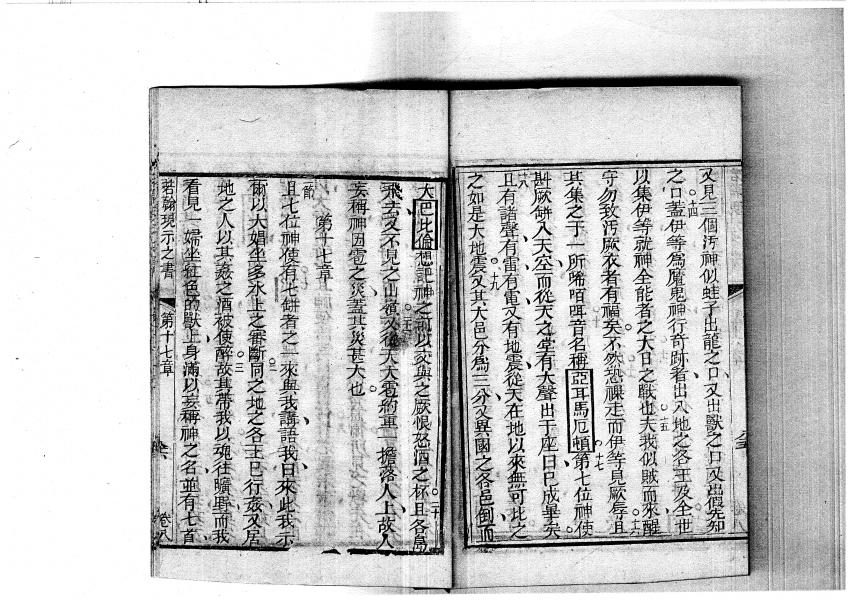 又見三個污神似蛙子出龍之口又出獸之口又出假先知
○十四
之口蓋伊等為魔鬼神行奇跡者出入地之各王及全世
○十五
以集伊等就神全能者之大日之戰也夫我似賊而來醒
○十六
守勿致污厥衣者有福矣不然恐裸走而伊等見厥辱且
其集之于一所唏咟咡音名稱亞耳馬厄頓
○十七
第七位神使
斟厥缾入天空而從天之堂有大聲出于座曰巳成畢矣
十八
且有諸聲有雷有電又有地震從天在地以來無可比之
○十九
之如是大地震又其大邑分為三分又異國之各邑倒而
大巴比倫想記神之前以交與之厥恨怒酒之杯且各島
○二十
飛去又不見之山嶺又從天大雹約重一擔落人上故人
妄稱神因雹之災蓋其災甚大也
第十七章
一節
且七位神使有七缾者之一來與我講語我曰來此我示
○二
爾以大娼坐多水上之審斷同之地之各王巳行姦又居
○三
地之人以其姦之酒被使醉故其帶我以魂往曠野而我
看見一婦坐紅色的獸上身滿以妄稱神之名並有七首
若翰現示之書
第十七章
卷八